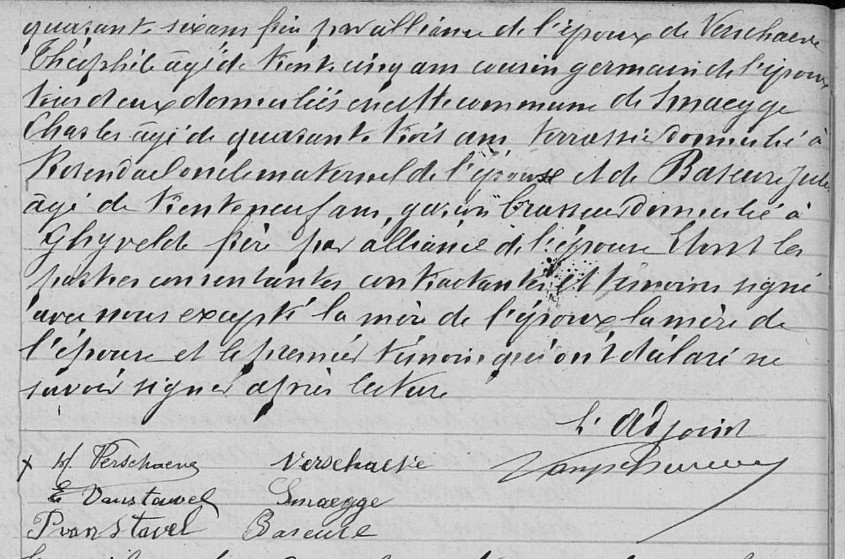 quarante six ans frère par alliance de l'époux de Verschaeve
Théophile âgé de trente cinq ans cousin germain de l'époux
tous deux domiciliés en cette commune de Smaegge
Charles âgé de quarante trois ans terrassier domicilié à
Rosendael oncle maternel de l'épouse et de Baseure Jules
âgé de trente neuf ans, garçon brasseur domicilié à
Ghyvelde frère par alliance de l'épouse Et ont les
parties consentantes contractantes et témoins signé
avec nous excepté la mère de l'époux la mère de
l'épouse et le premier témoin qui ont déclaré ne
savoir signer après lecture
L'Adjoint
x H. Verschaeve Verschaeve
E Vanstavel Smaegge
P vanstavel Baseure